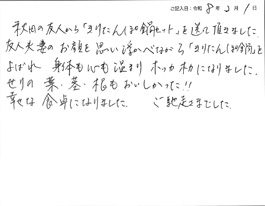 ご記入日：令和 8年 2月 1日
秋田の友人から「きりたんぽ鍋セット」を送て頂きました。
友人夫妻のお顔を思い浮かべながら「きりたんぽ鍋」を
よばれ 身体も心も温まり ホッカホカになりました。
せりの葉・茎・根もおいしかった!!
幸せな食卓になりました。 ご馳走さまでした。